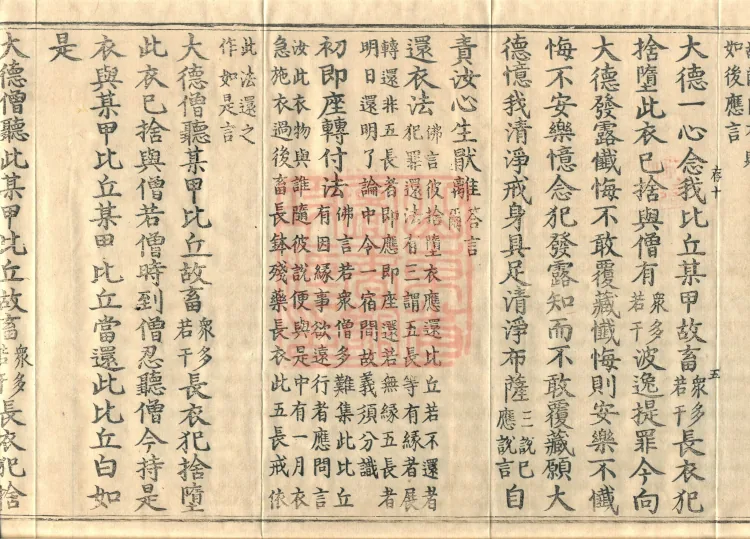 如後應言
大德一心念我比丘某甲故畜衆多若干長衣犯
存十
五
捨墮此衣已捨與僧有衆多若干波逸提罪今向
大德發露懺悔不敢覆藏懺悔則安樂不懺
悔不安樂憶念犯發露知而不敢覆藏願大
德憶我清淨戒身具足清淨布薩三說已應說言自
責汝心生猒離荅言爾
還衣法佛言彼捨墮衣應還比丘若不還者
犯罪還法有三謂五長等有緣者展
轉還非五長者即應即座還若無緣五長者
明日還明了論中今一宿問故義須分識
初即座轉付法佛言若衆僧多難集此比丘
有因緣事欲遠行者應問言
汝此衣物與誰隨彼說便與是中有一月衣
急施衣過後畜長鉢殘藥長衣此五長戒依
此法還之
作如是言
大德僧聽某甲比丘故畜衆多若干長衣犯捨墮
此衣已捨與僧若僧時到僧忍聽僧今持是
衣與某甲比丘某甲比丘當還此比丘白如
是
大德僧聽此某甲比丘故畜衆多若干長衣犯捨